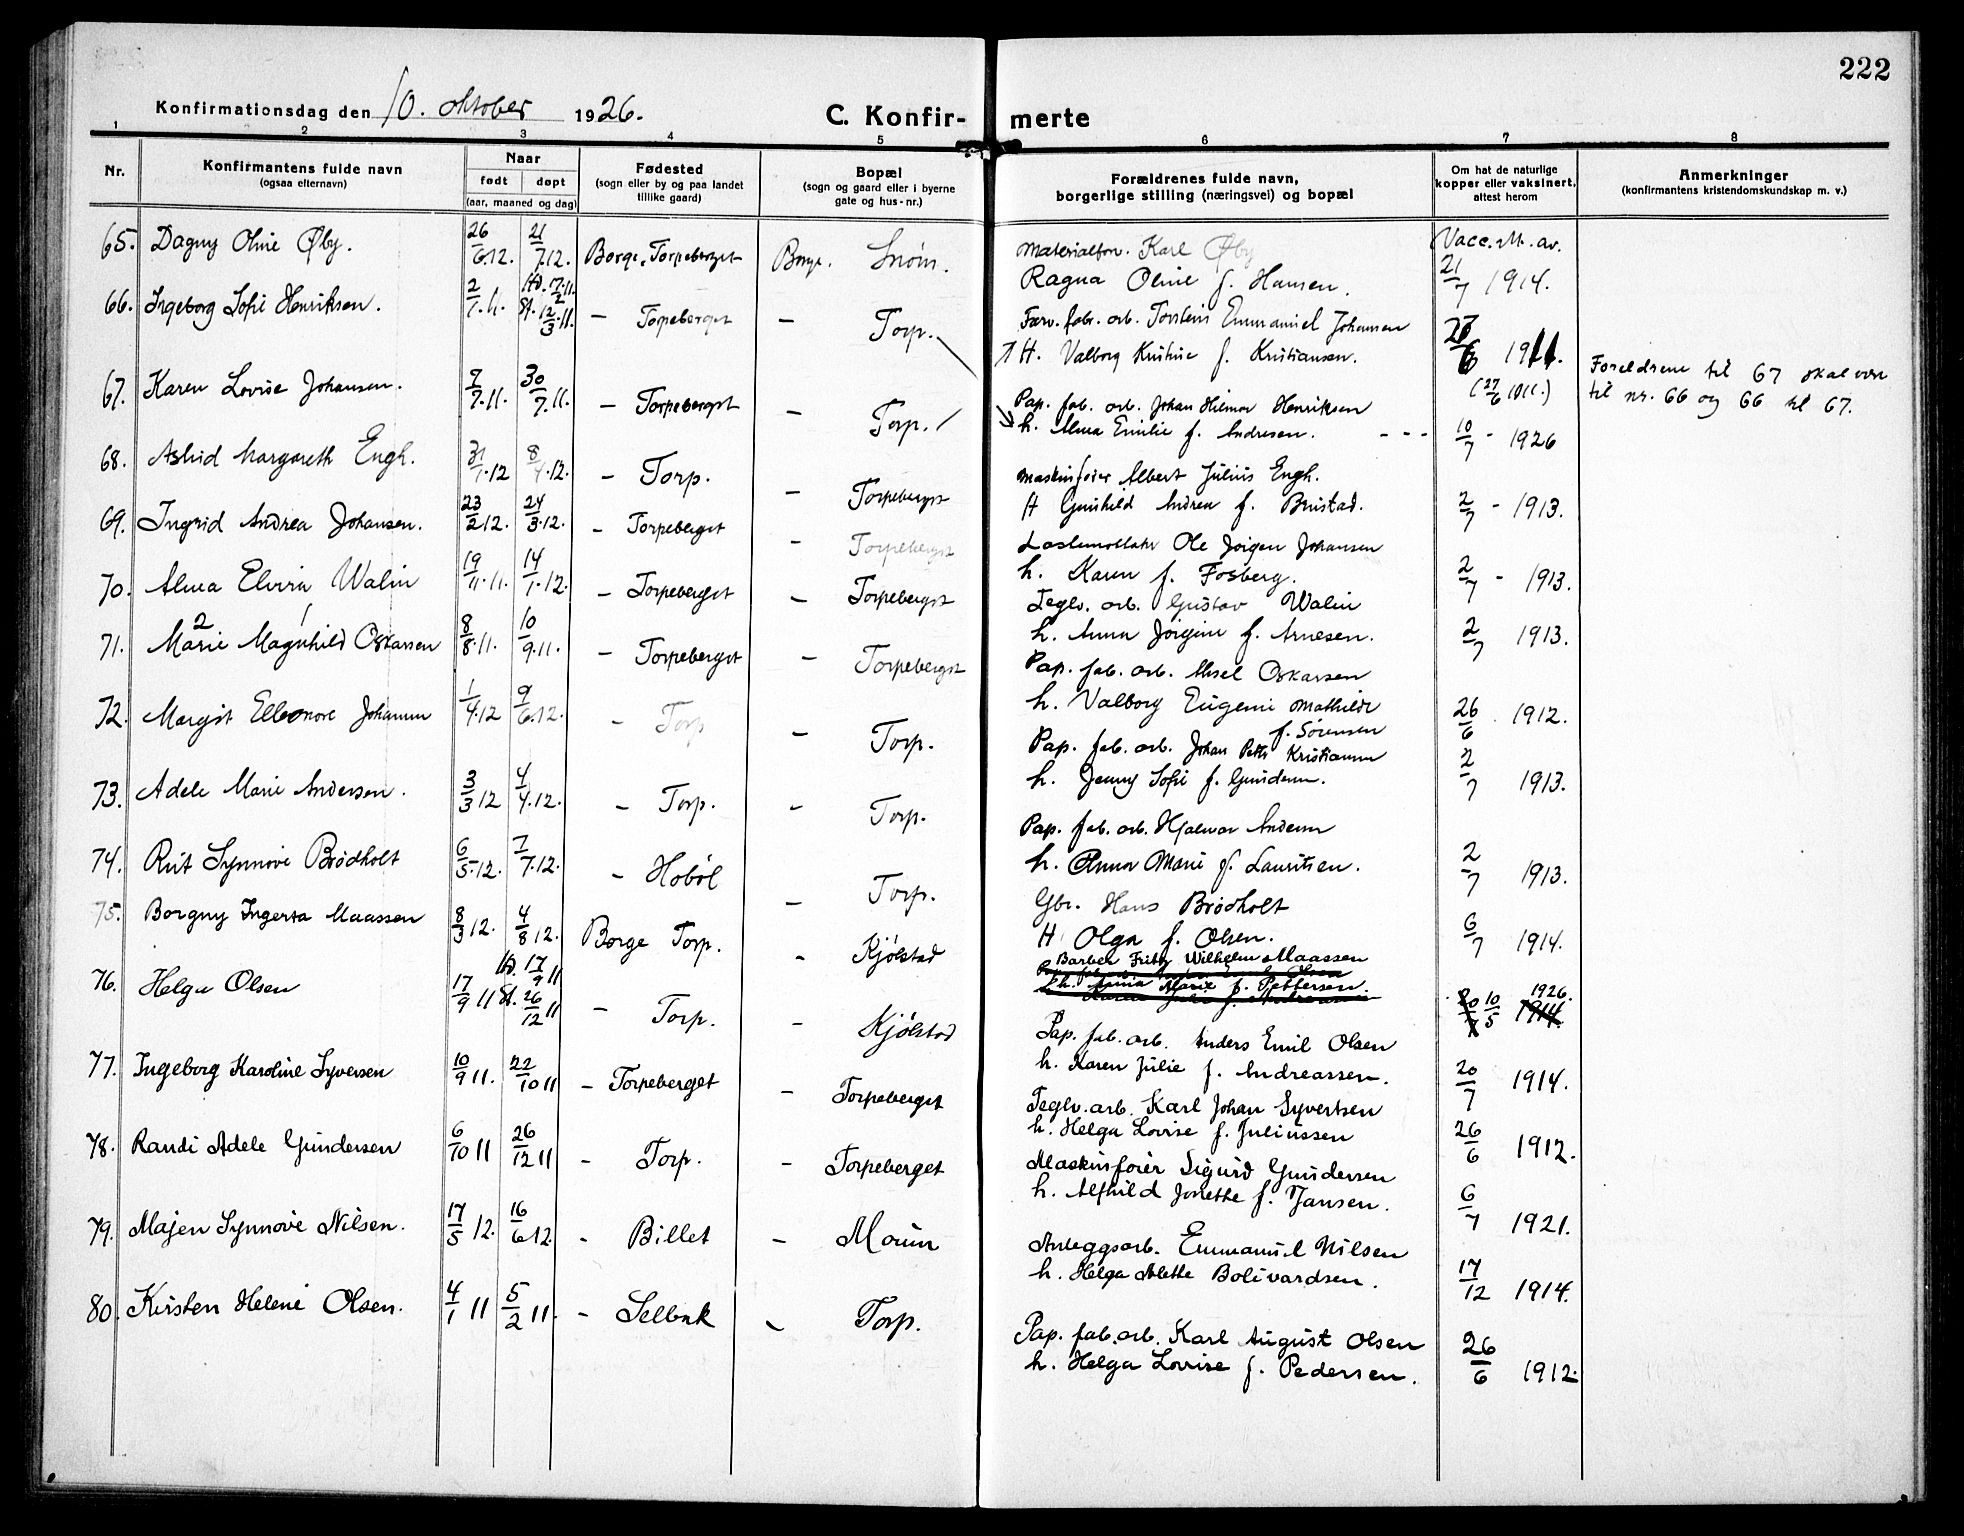 222
Konfirmationsdag den 10. oktober 1926.
C. Konfir- merte
1 2 3 4 5 6 7 8
Nr.
Konfirmantens fulde navn
(ogsaa efternavn)
Naar
født døpt
(aar, maaned og dag)
Fødested
(sogn eller by og paa landet
tillike gaard)
Bopæl
(sogn og gaard eller i byerne
gate og hus-nr.)
Forældrenes fulde navn,
borgerlige stilling (næringsvei) og bopæl
Om hat de naturlige
kopper eller vaksinert,
attest herom
Anmerkninger
(konfirmantens kristendomskundskap m. v.)
65. Dagny Oline Øby. 26/6.12. 21/7.12. Borge, Torpeberget Borge.
Materialforv. Karl Øby
Ragna Oline f. Hansen.
Vacc. att. av.
21/7 1914.
66. Ingeborg Sofie Henriksen. 2/1.11. Hd. 17/2.11. St. 12/3.11. – Torpeberget – Torp.
Færv. fabr. arb. Torstein Emmanuel Johansen
H. Valborg Kristine f. Kristiansen.
27/6 1911.
(27/6 1911.)
Foreldrene til 67 skal være
til nr. 66 og 66 til 67.
67. Karen Lovise Johansen. 7/7.11. 30/7.11. – Torpeberget – Torp.
Pap. fab. arb. Johan Hilmar Henriksen
h. Alma Emilie f. Andresen. - - -
10/7 - 1926
68. Astrid Margareth Engh. 31/1.12 8/4.12. – Torp. – Torpeberget
Maskinfører Albert Julius Engh.
H Gunhild Andrea f. Brustad.
2/7 - 1913.
69. Ingrid Andrea Johansen. 23/2 12. 24/3.12. – Torpeberget – Torpeberget
Ole Jørgen Johansen
h. Karen f. Fosberg.
2/7 - 1913.
70. Alma Elvira Walin 19/11.11. 14/1.12. – Torpeberget – Torpeberget
Teglv. arb. Gustav Walin
h. Anna Jørgine f. Arnesen.
2/7 1913.
71. 2 1
Marie Magnhild Oskarsen 8/8.11. 10/9.11. – Torpeberget – Torpeberget
Pap. fab. arb. Aksel Oskarsen
h. Valborg Eugenie Mathilde
f. Sørensen
26/6 1912.
72. Margit Elleonore Johansen 1/4.12 9/6.12. – Torp – Torp.
Pap. fab. arb. Johan Petter Kristiansen
h. Jenny Sofie f. Gundersen.
2/7 1913.
73. Adele Marie Andersen. 3/3 12 4/4.12. – Torp. – Torp.
Pap. fab. arb. Hjalmar Andersen
h. Anna Marie f. Lauritsen.
2/7 1913.
74. Rut Synnøve Brødholt 6/5.12. 7/7.12. – Hobøl – Torp.
Gbr. Hans Brødholt
H Olga f. Olsen.
6/7 1914.
75. Borgny Ingerta Maassen 8/3 12. 4/8 12. Borge Torp. – Kjølstad
Barber Fritz Wilhelm Maassen
h. Anna Marie f. Pettersen.
10/5 1926.
1914.
76. Helga Olsen 17/9 11 Hd. 17/9 11 St. 26/12 11 – Torp. – Kjølstad
Pap. fab. arb. Anders Emil Olsen
h. Karen Julie f. Andreassen.
20/7 1914.
77. Ingeborg Karoline Syversen 10/9 11. 22/10 11 – Torpeberget – Torpeberget
Teglv. arb. Karl Johan Syvertsen
h. Helga Lovise f. Juliussen
26/6 1912.
78. Randi Adele Gundersen 6/10 11 26/12 11 – Torp. – Torpeberget
Maskinfører Sigurd Gundersen
h. Alfhild Jonette f. Jansen.
6/7 1921.
79. Majen Synnøve Nilsen. 17/5 12. 16/6 12. – Billet – Moum
Anleggsarb. Emmanuel Nilsen
h. Helga Alette Bolivardsen.
17/12 1914.
80. Kirsten Helene Olsen. 4/1 11 5/2 11. – Selbak – Torp.
Pap. fab. arb. Karl August Olsen
h. Helga Lovise f. Pedersen.
26/6 1912.